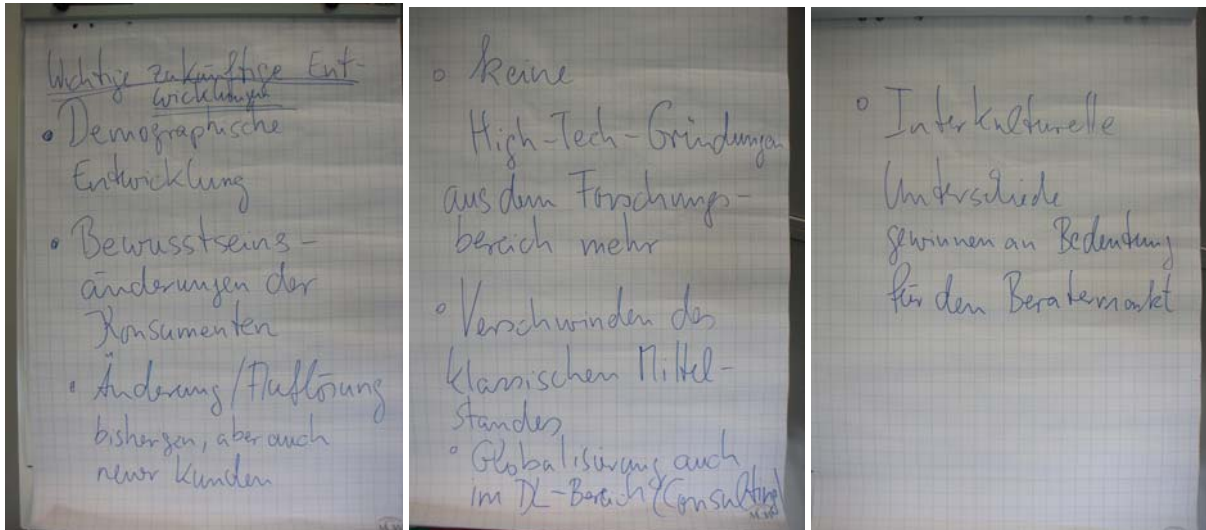 Wichtige zukünftige Ent-
wicklungen
• Demographische
Entwicklung
• Bewusstseins-
änderungen der
Konsumenten
• Änderung/Auflösung
bisheriger, aber auch
neuer Kunden
o keine
High-Tech-Gründungen
aus dem Forschungs-
bereich mehr
o Verschwinden des
klassischen Mittel-
standes
o Globalisierung auch
im DL-Bereich (Consulting)
o Interkulturelle
Unterschiede
gewinnen an Bedeutung
für den Beratermarkt